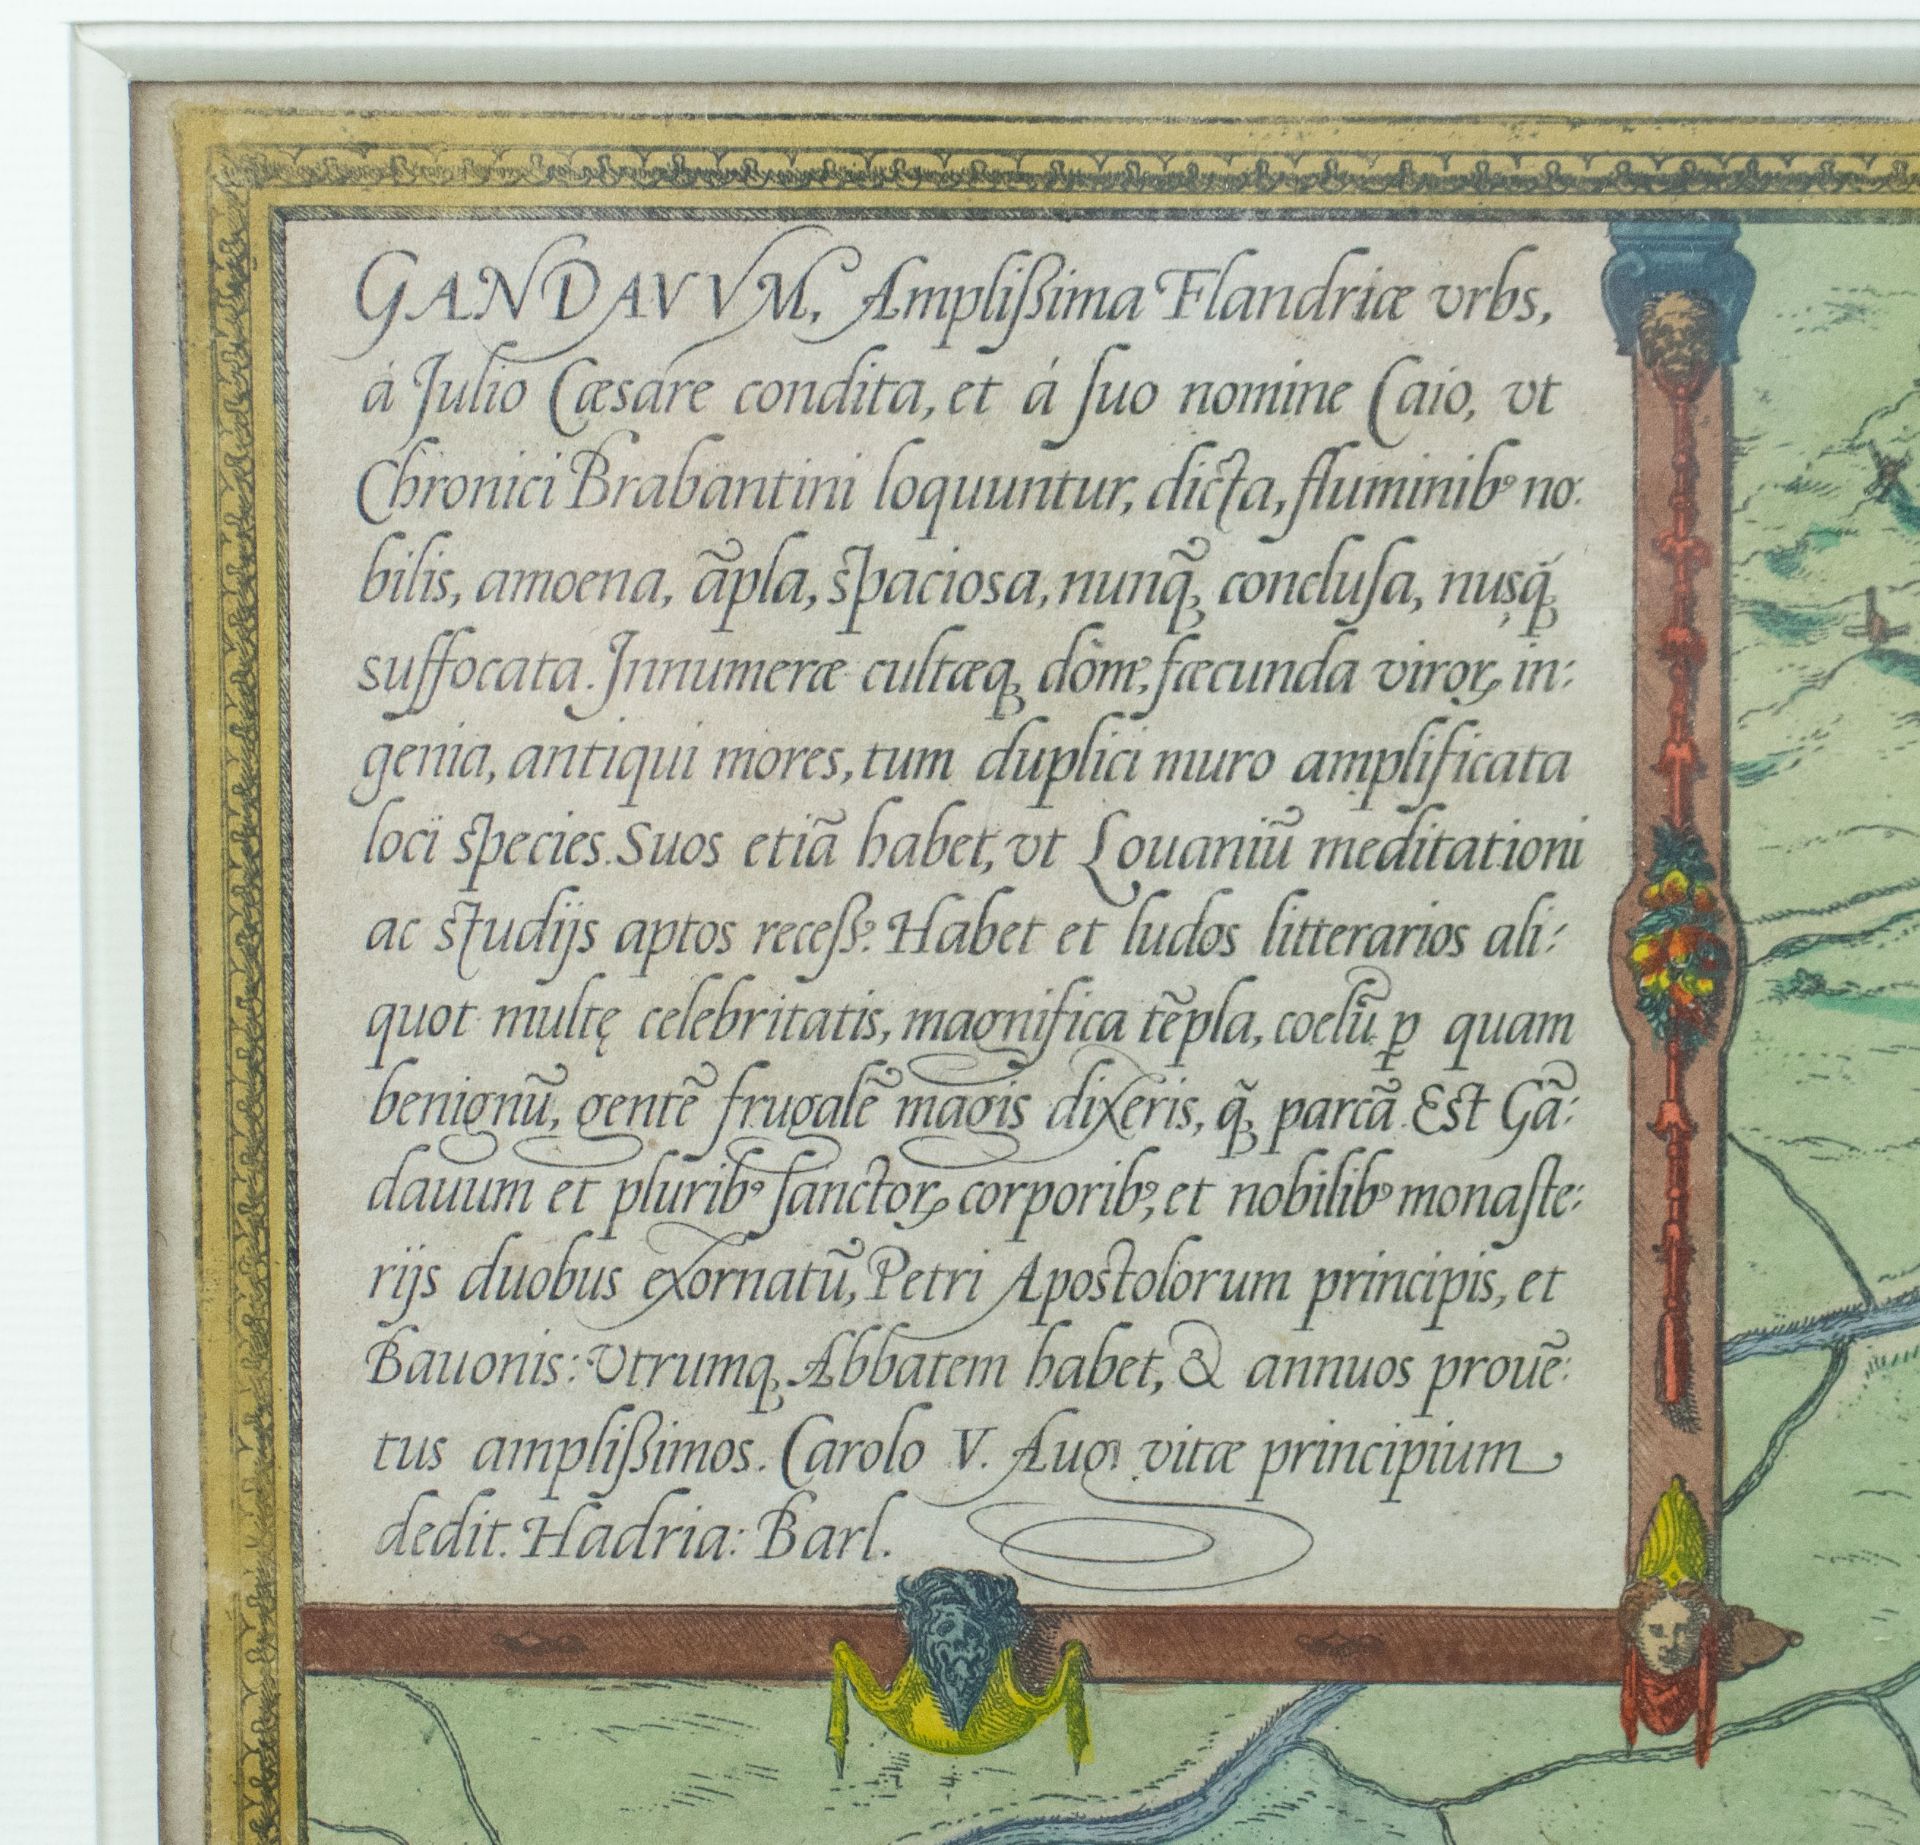 GANDAVVM, Ampliſsima Flandriæ vrbs,
á Julio Cæsare condita, et á ſuo nomine Caio, vt
Chronici Brabantini loquuntur, dicta, fluminibꝰ no:
bilis, amoena, ãpla, spaciosa, nunq̃ꝫ concluſa, nusq̃ꝫ
suffocata. Innumeræ cultæqꝫ domꝰ, fæcunda viroꝝ in:
genia, antiqui mores, tum duplici muro amplificata
loci species. Suos etiã habet, vt Louaniũ meditationi
ac studijs aptos receſsꝰ. Habet et ludos litterarios ali:
quot multę celebritatis, magnifica tẽpla, coelũ ꝑ quam
benignũ, gentẽ frugalẽ magis dixeris, q̃ꝫ parcã. Est Gã:
dauum et pluribꝰ ſanctoꝝ corporibꝰ, et nobilibꝰ monaſte:
rijs duobus exornatũ, Petri Apostolorum principis, et
Bauonis: Vtrumqꝫ Abbatem habet, & annuos prouẽ:
tus ampliſsimos. Carolo V. Aug. vitæ principium
dedit. Hadria: Barl.